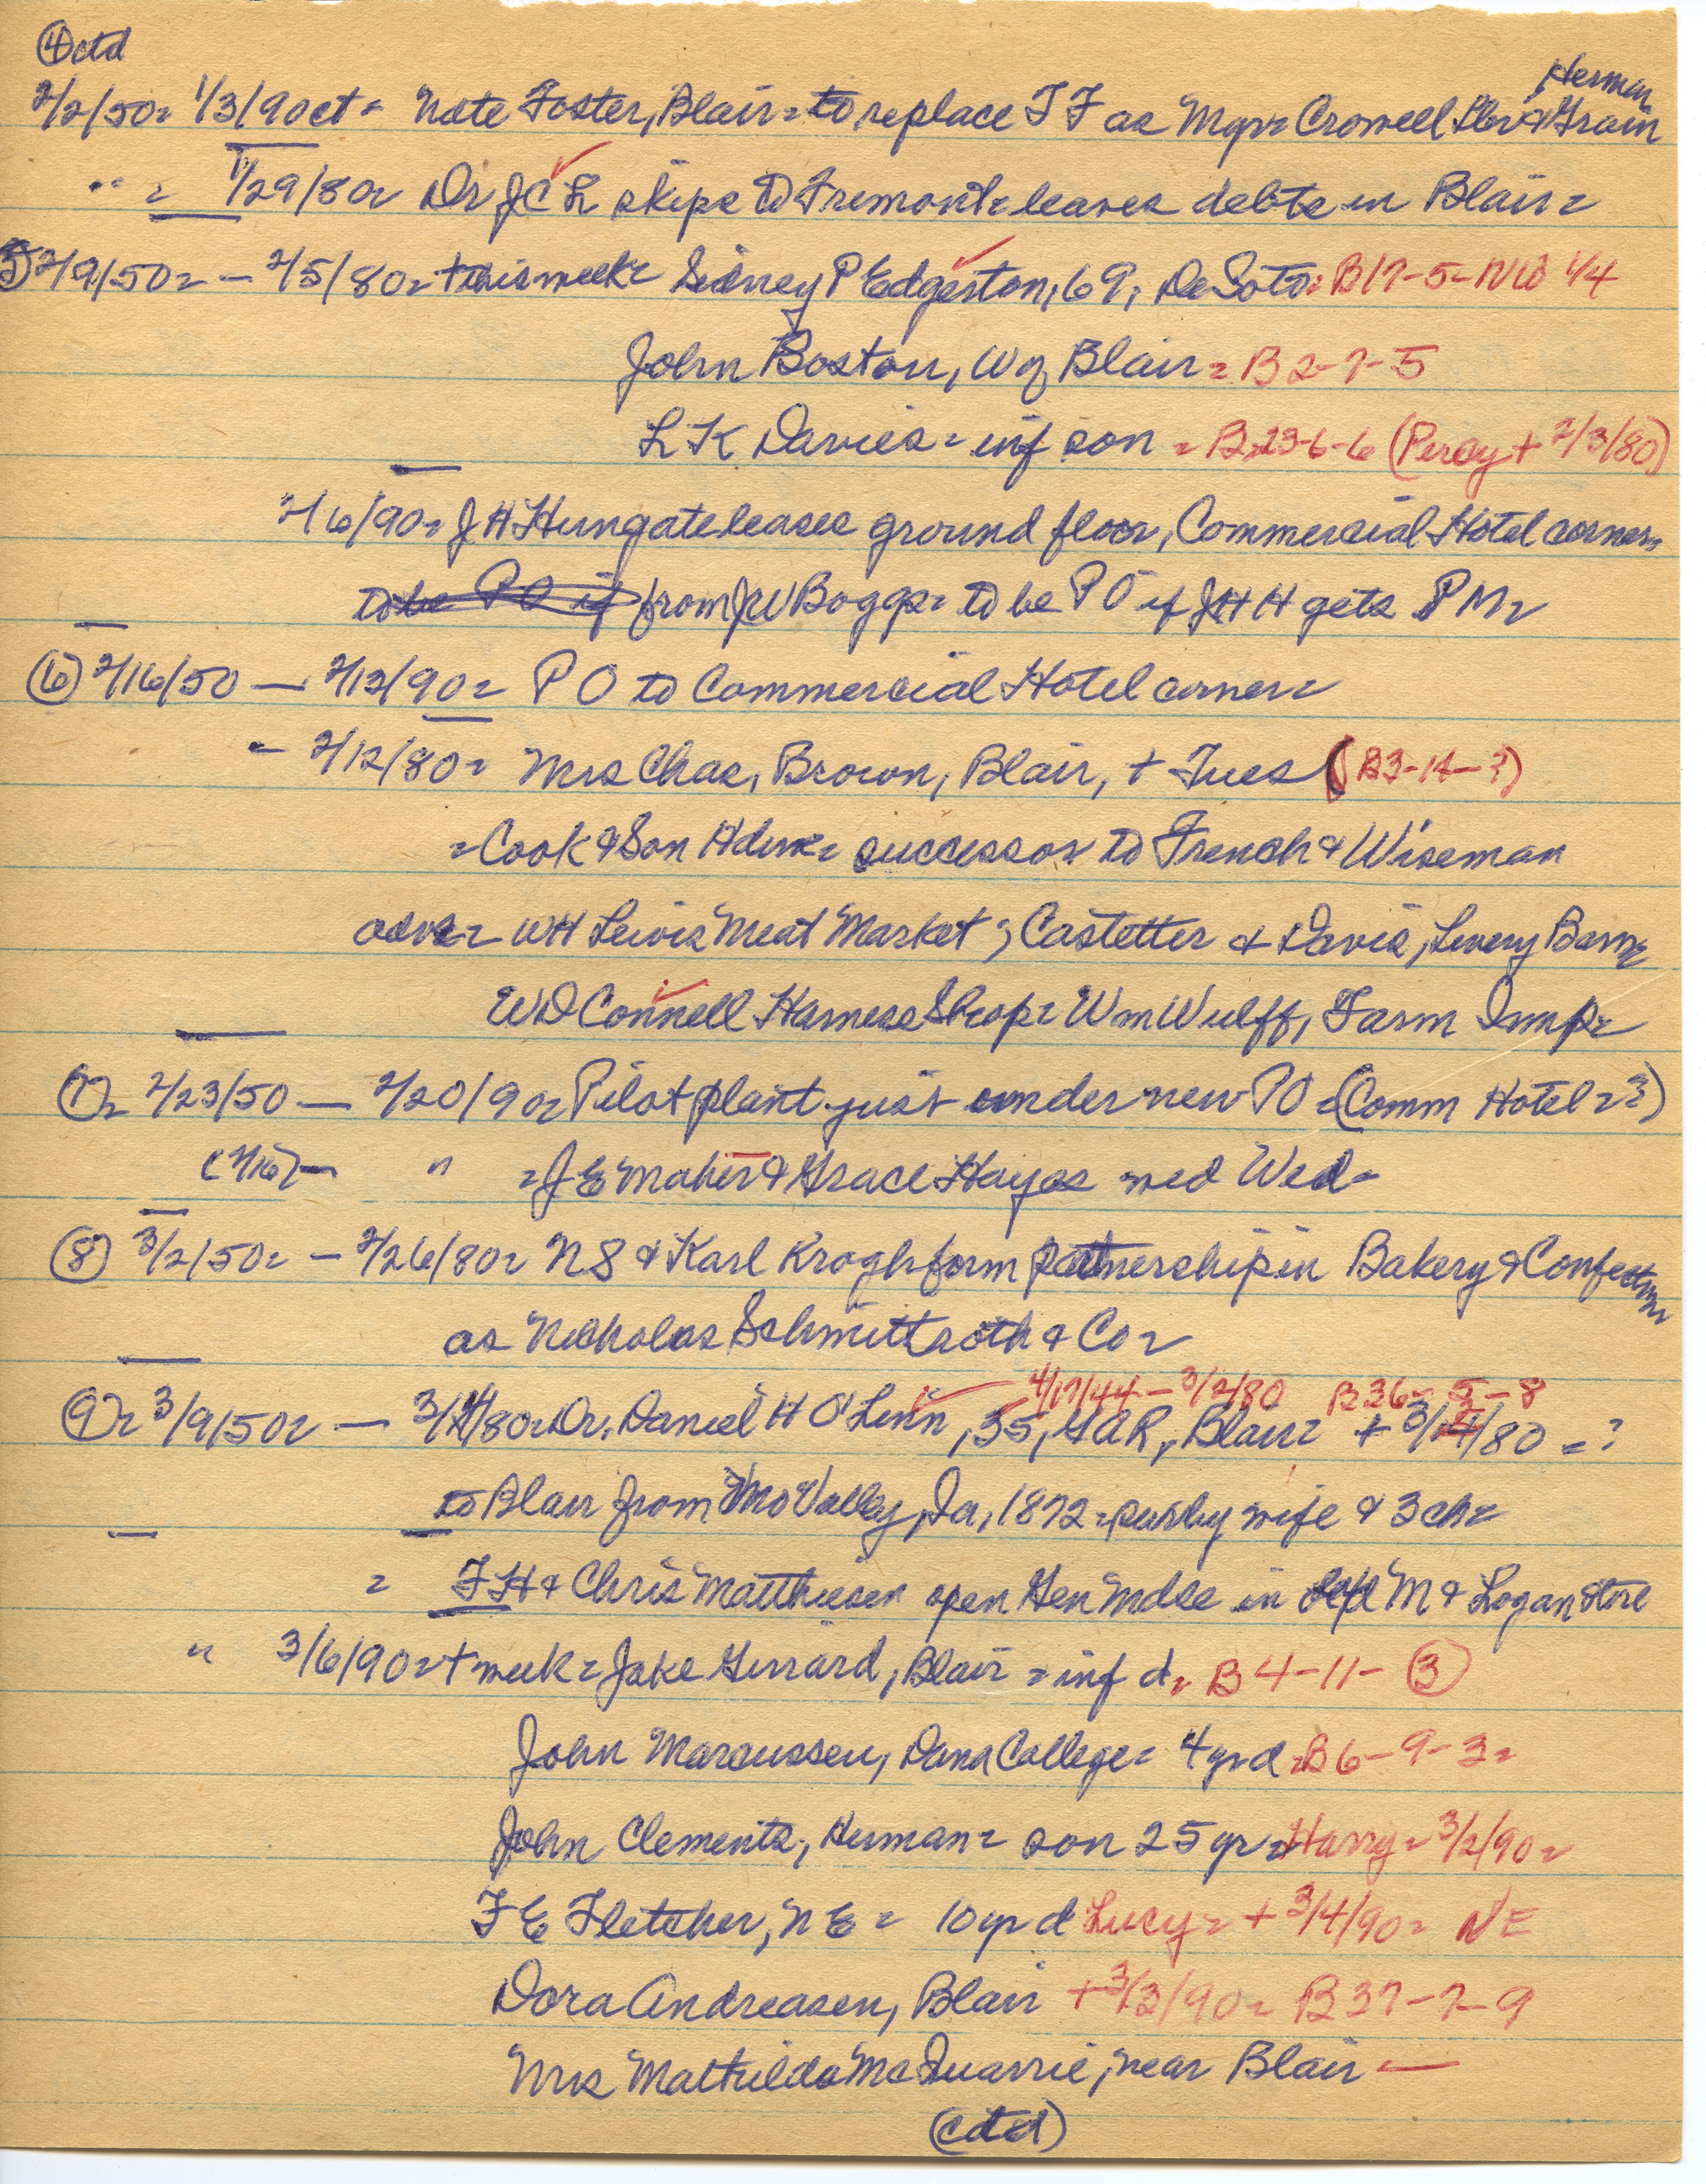 ④ctd
2/2/50= 1/3/90 ct= Nate Foster, Blair= to replace T F as Mgr= Crowell Lbr & Grain Herman
" = 1/29/80= Dr J C L skips to Fremont= leaves debts in Blair=
⑤ 2/9/50= — 2/5/80= + this week= Sidney P Edgerton, 69, DeSoto= B17-5-NW 1/4
John Boston, W of Blair= B2-7-5
L K Davies= inf son = B23-6-6 (Percy + 2/3/80)
2/6/90= J H Hungate leases ground floor, Commercial Hotel corner=
to be PO if from JW Boggs= to be PO if JHH gets PM=
⑥ 2/16/50 — 2/13/90= PO to Commercial Hotel corner=
- 2/12/80= Mrs Chas. Brown, Blair, + Tues (B3-14-?)
= Cook & Son Hdwe= successor to French & Wiseman
advs= WH Lewis Meat Market; Castetter & Davis, Livery Barn=
WD Connell Harness Shop= Wm Wulff, Farm Imp=
⑦= 2/23/50 — 2/20/90= Pilot plant just under new PO = (Comm Hotel=?)
(2/16)— " = J E Maher & Grace Hayes wed Wed=
⑧ 3/2/50= — 2/26/80= NS & Karl Krogh form partnership in Bakery & Confectnr
as Nicholas Schmittroth & Co=
4/17/44 — 3/2/80 B36-5-8
⑨= 3/9/50= — 3/4/80= Dr. Daniel H O'Linn, 35, GAR, Blair= + 3/2/80 =?
to Blair from Mo Valley, Ia, 1872= surby wife & 3 ch=
= FH & Chris Matthiesen open Gen Mdse in M & Logan store
" 3/6/90= + week= Jake Gerrard, Blair = inf d= B4-11-③
John Marcussen, Dana College= 4 yr d =B6-9-3=
John Clements, Herman= son 25 yr= Harry= 3/2/90=
F E Fletcher, N E = 10 yr d Lucy= + 3/4/90= NE
Dora Andreasen, Blair + 3/3/90= B37-7-9
Mrs Mathilda McQuarrie, near Blair —
(ctd)